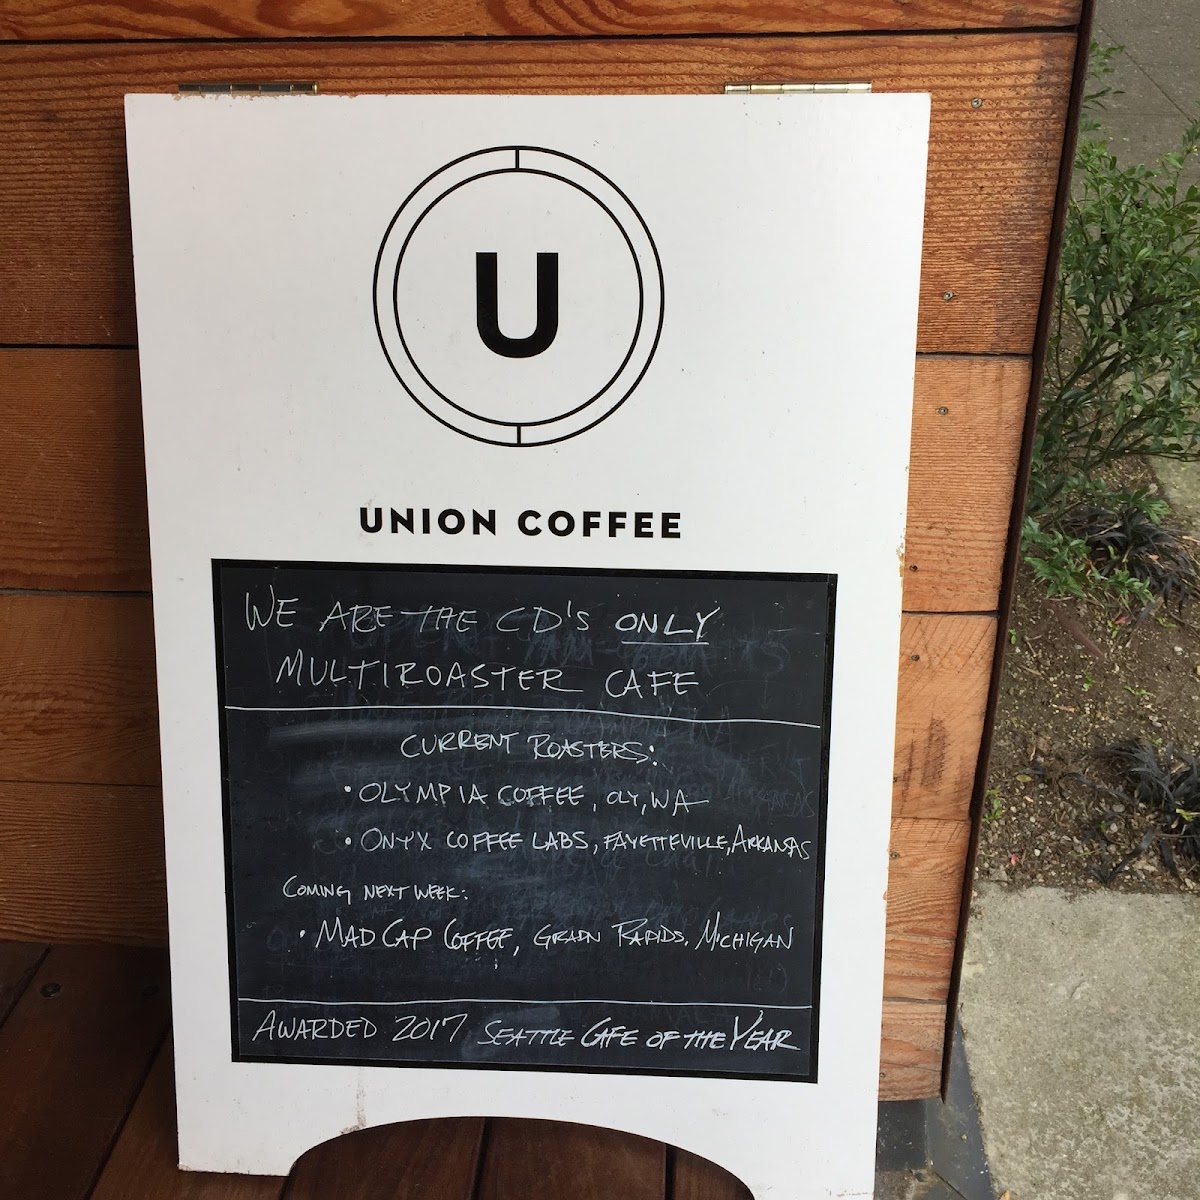 U
UNION COFFEE
WE ARE THE CD'S ONLY
MULTIROASTER CAFE
CURRENT ROASTERS:
• OLYMPIA COFFEE, OLY, WA
• ONYX COFFEE LABS, FAYETTEVILLE, ARKANSAS
COMING NEXT WEEK:
• MAD CAP COFFEE, GRAN RAPIDS, MICHIGAN
AWARDED 2017 SEATTLE CAFE OF THE YEAR